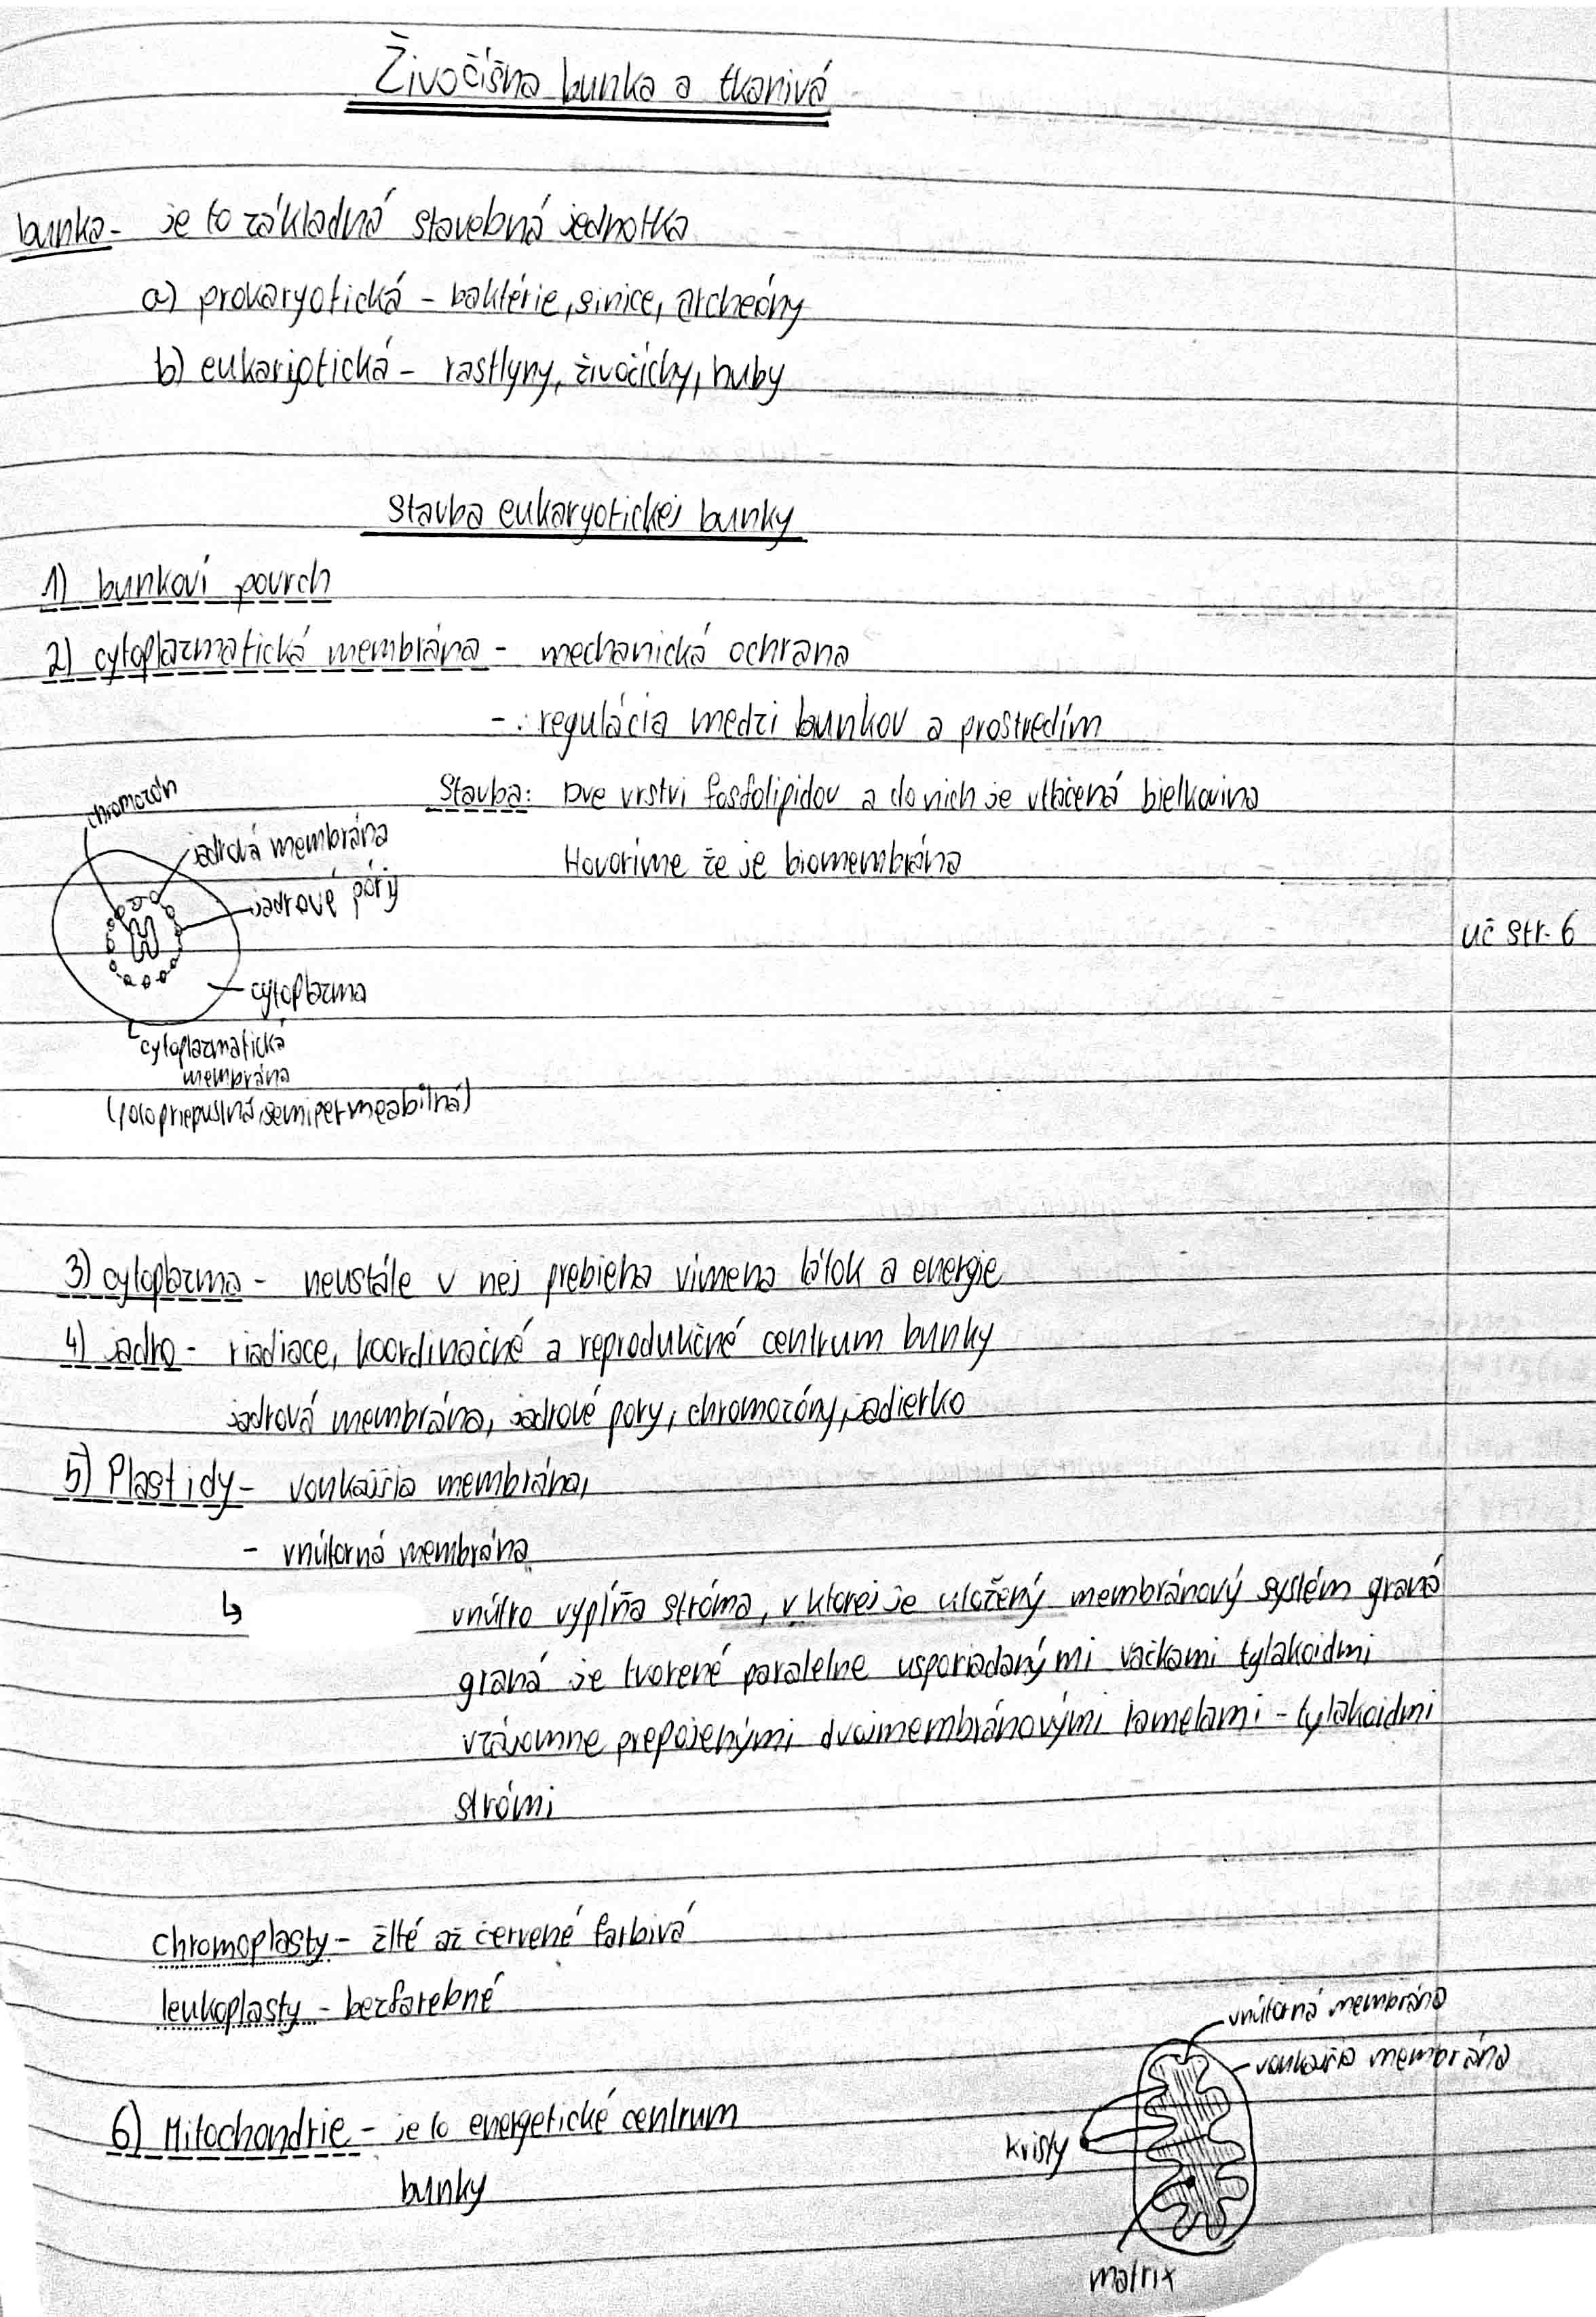 Živočíšna bunka a tkanivá
bunka - je to základná stavebná jednotka
a) prokaryotická - baktérie, sinice, archeóny
b) eukariotická - rastlyny, živočíchy, huby
Stavba eukaryotickej bunky
1) bunkoví povrch
2) cytoplazmatická membrána - mechanická ochrana
- regulácia medzi bunkov a prostredím
Stavba: Dve vrstvi fosfolipidov a do nich je vtlačená bielkovina
Hovoríme že je biomembrána
chromozón
jadrová membrána
jadrové póry
uč str. 6
cytoplazma
cytoplazmatická
membrána
(polopriepustná, semipermeabilná)
3) cytoplazma - neustále v nej prebieha vímena látok a energie
4) jadro - riadiace, koordinačné a reprodukčné centrum bunky
jadrová membrána, jadrové pory, chromozóny, jadierko
5) Plastidy - vonkajšia membrána,
- vnútorná membrána
↳ vnútro vyplňa stróma, v ktorej je uložený membránový systém graná
graná je tvorené paralelne usporiadanými vačkami tylakoidmi
vzájomne prepojenými dvojmembránovými lamelami - tylakoidmi
strómi
chromoplasty - žlté až červené farbivá
leukoplasty - bezfarebné
vnútorná membrána
vonkajšia membrána
6) Mitochondrie - je to energetické centrum
bunky
kristy
matrix